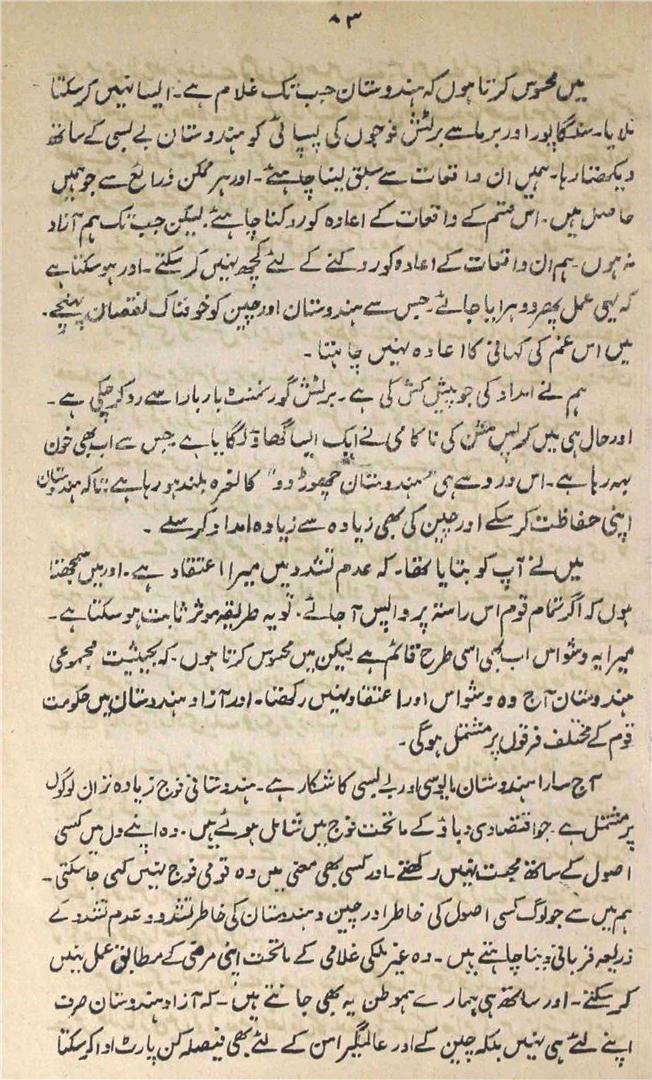 ۸۳
میں محسوس کرتا ہوں کہ ہندوستان جب تک غلام ہے۔ ایسا نہیں کر سکتا
ملایا۔ سنگاپور اور برما سے برٹش فوجوں کی پسپائی کو ہندوستان بے بسی کے ساتھ
دیکھتا رہا۔ ہمیں ان واقعات سے سبق لینا چاہئے۔ اور ہر ممکن ذرائع سے جو ہمیں
حاصل ہیں۔ اس قسم کے واقعات کے اعادہ کو روکنا چاہئے۔ لیکن جب تک ہم آزاد
نہ ہوں۔ ہم ان واقعات کے اعادہ کو روکنے کے لئے کچھ نہیں کر سکتے۔ اور ہو سکتا ہے
کہ یہی عمل پھر دوہرایا جائے۔ جس سے ہندوستان اور چین کو خوفناک نقصان پہنچے۔
میں اس غم کی کہانی کا اعادہ نہیں چاہتا۔
ہم نے امداد کی جو پیش کش کی ہے۔ برٹش گورنمنٹ بار بار اسے رد کر چکی ہے۔
اور حال ہی میں کرپس مشن کی ناکامی نے ایک ایسا گھاؤ لگایا ہے جس سے اب بھی خون
بہہ رہا ہے۔ اس درد سے ہی "ہندوستان چھوڑ دو" کا نعرہ بلند ہو رہا ہے تاکہ ہندوستان
اپنی حفاظت کر سکے اور چین کی بھی زیادہ سے زیادہ امداد کر سکے۔
میں نے آپ کو بتایا تھا۔ کہ عدم تشدد میں میرا اعتقاد ہے۔ اور میں سمجھتا
ہوں کہ اگر تمام قوم اس راستہ پر واپس آ جائے۔ تو یہ طریقہ موثر ثابت ہو سکتا ہے۔
میرا یہ وشواس اب بھی اسی طرح قائم ہے لیکن میں محسوس کرتا ہوں۔ کہ بحیثیت مجموعی
ہندوستان آج وہ وشواس اور اعتقاد نہیں رکھتا۔ اور آزاد ہندوستان میں حکومت
قوم کے مختلف فرقوں پر مشتمل ہوگی۔
آج سارا ہندوستان مایوسی اور بے بسی کا شکار ہے۔ ہندوستانی فوج زیادہ تر ان لوگوں
پر مشتمل ہے جو اقتصادی دباؤ کے ماتحت فوج میں شامل ہوئے ہیں۔ وہ اپنے دل میں کسی
اصول کے ساتھ محبت نہیں رکھتے۔ اور کسی بھی معنی میں وہ قومی فوج نہیں کہی جا سکتی۔
ہم میں سے جو لوگ کسی اصول کی خاطر اور چین و ہندوستان کی خاطر تشدد و عدم تشدد کے
ذریعہ قربانی دینا چاہتے ہیں۔ وہ غیر ملکی غلامی کے ماتحت اپنی مرضی کے مطابق عمل نہیں
کر سکتے۔ اور ساتھ ہی ہمارے ہموطن یہ بھی جانتے ہیں۔ کہ آزاد ہندوستان صرف
اپنے لئے ہی نہیں بلکہ چین کے اور عالمگیر امن کے لئے بھی فیصلہ کن پارٹ ادا کر سکتا